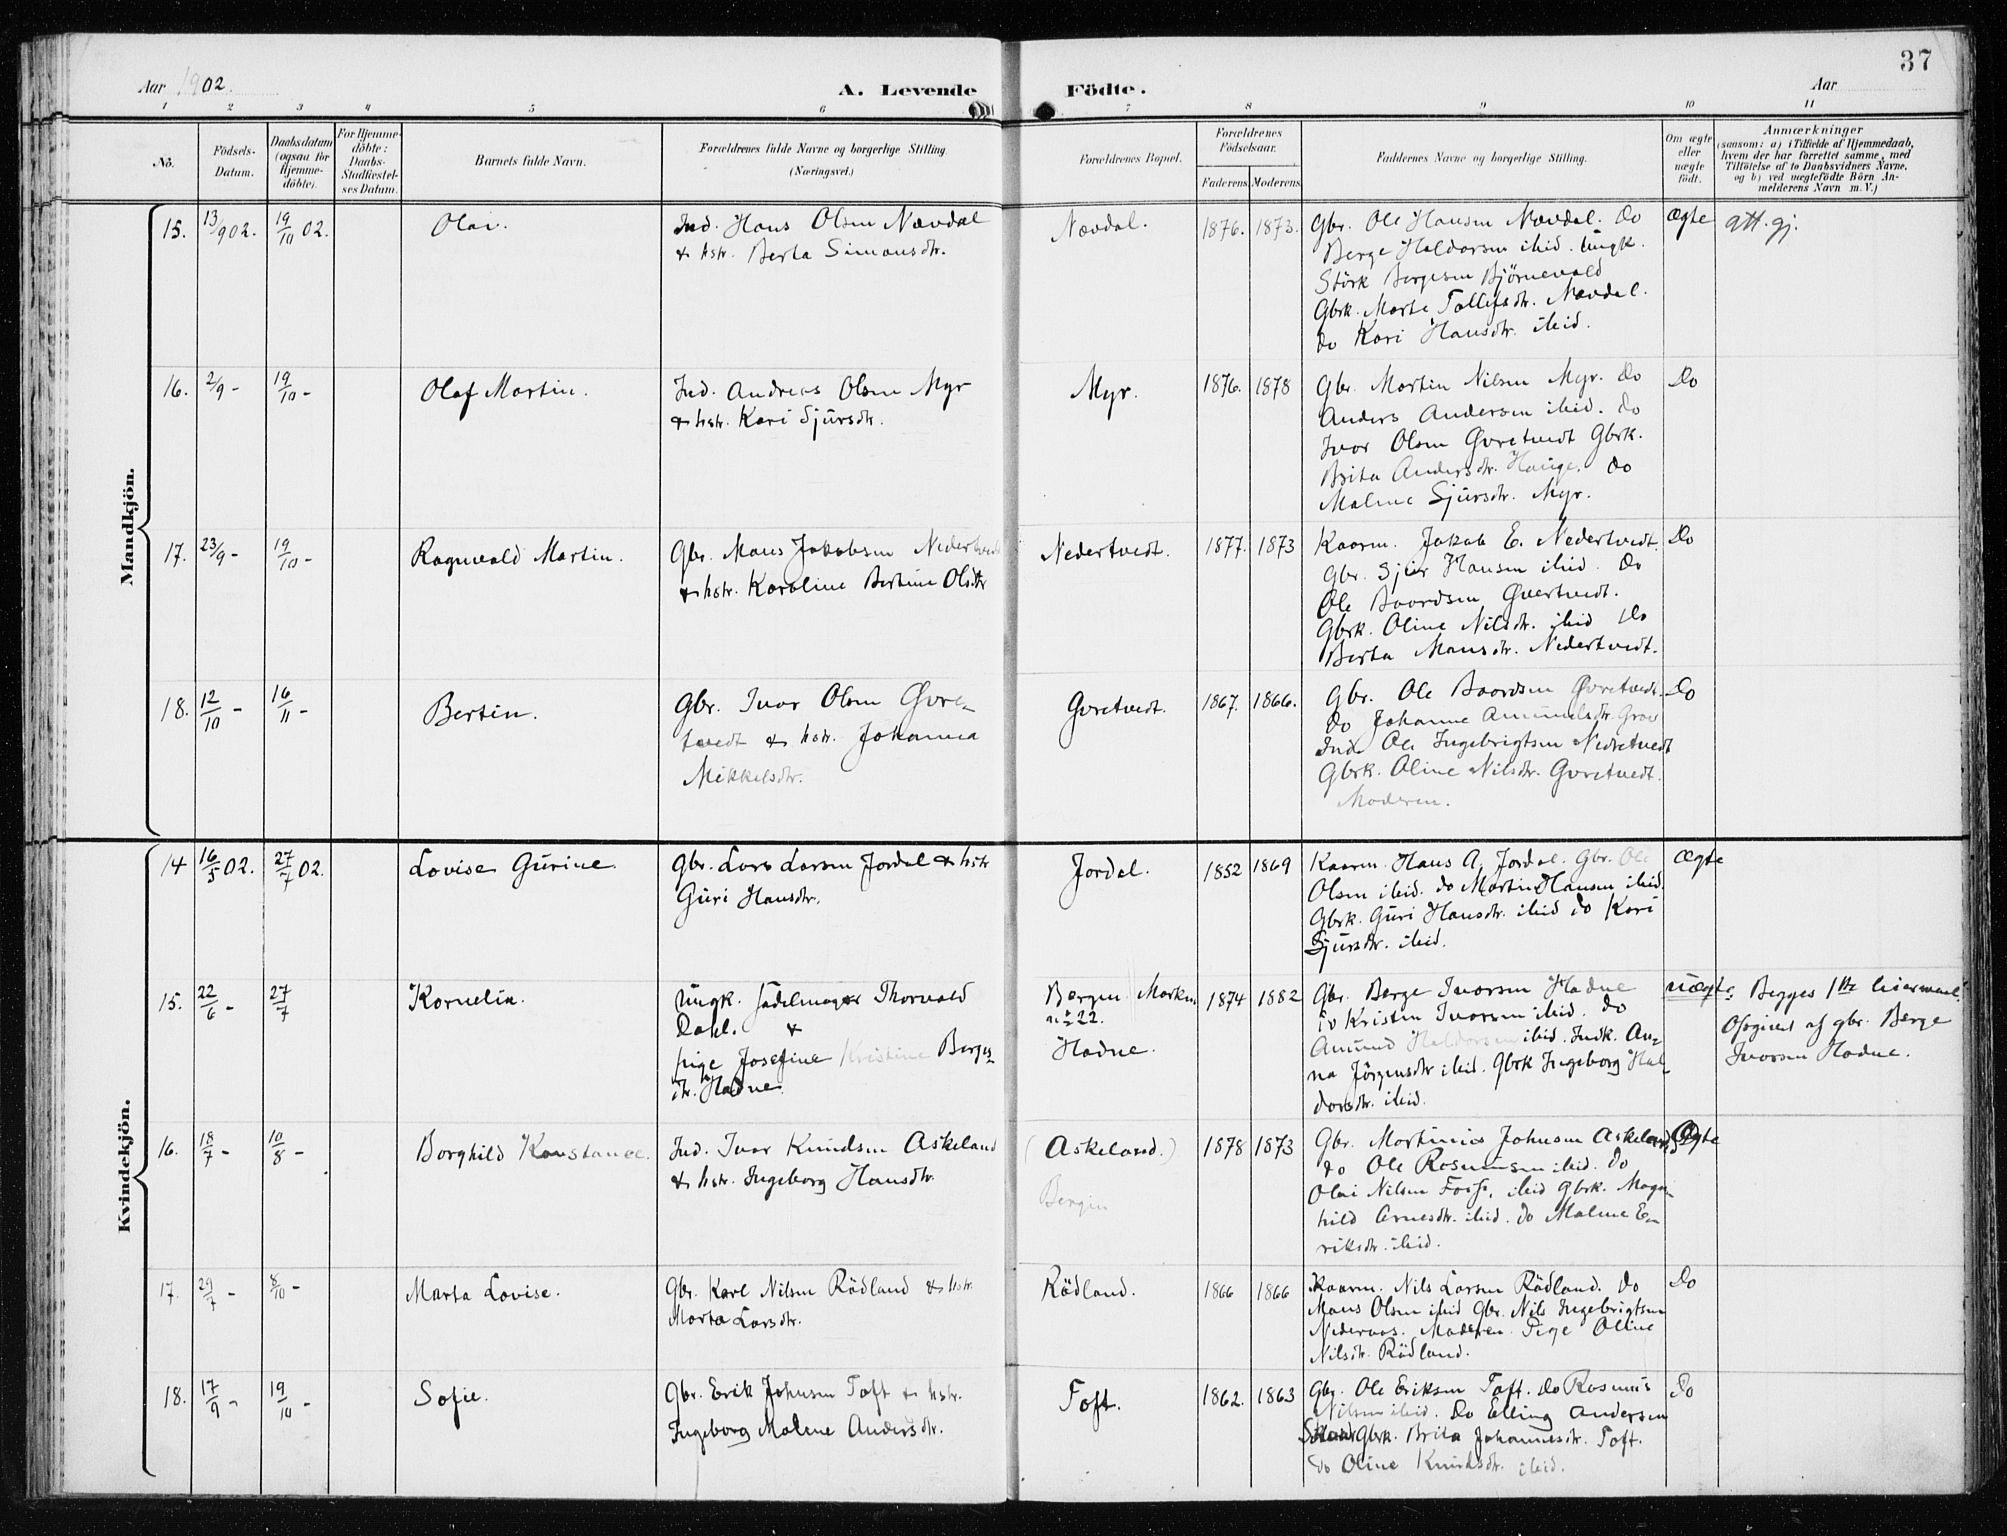 37
Aar 1902.
A. Levende Födte.
Aar
1 2 3 4 5 6 7 8 9 10 11
No.
Födsels-Datum.
Daabsdatum (ogsaa for Hjemme-döbte).
For Hjemme-döbte: Daabs-Stadfæstel-ses Datum.
Barnets fulde Navn.
Forældrenes fulde Navne og borgerlige Stilling.
(Næringsvei.)
Forældrenes Bopæl.
Forældrenes Födselsaar.
Faderens. Moderens.
Faddernes Navne og borgerlige Stilling.
Om ægte eller uægte födt.
Anmærkninger
(saasom: a) i Tilfælde af Hjemmedaab,
hvem der har forrettet samme, med
Tilföielse af to Daabsvidners Navne,
og b) ved uægtefödte Börn An-
melderens Navn m. V.)
Mandkjön.
15. 13/9 02. 19/10 02. Olai.
Ind. Hans Olsen Nævdal
& hstr. Berta Simonsdtr.
Nævdal. 1876. 1873.
Gbr. Ole Hansen Nævdal. Do
Berge Haldorsen ibid. Ungk.
Störk Bergesen Björnevald
Gbrk. Marta Tollefsdtr. Nævdal.
do Kari Hansdtr. ibid.
Ægte att. gj.
16. 2/9 - 19/10 - Olaf Martin.
Ind. Andreas Olsen Myr
& hstr. Kari Sjursdtr.
Myr. 1876. 1878
Gbr. Martin Nilsen Myr. Do
Anders Andersen ibid. do
Ivar Olsen Øvretvedt Gbrk.
Brita Andersdtr. Hauge. Do
Malene Sjursdtr. Myr.
Do
17. 23/9 - 19/10 - Ragnvald Martin.
Gbr. Mons Jakobsen Nedertvedt
& hstr. Karoline Bertine Olsdtr
Nedertvedt. 1877. 1873
Kaarm. Jakob E. Nedertvedt.
Gbr. Sjur Hansen ibid. Do
Ole Baardsen Øvertvedt.
Gbrk. Oline Nilsdtr. ibid Do
Berta Monsdtr. Nedertvedt.
Do
18. 12/10 - 16/11 - Bertin.
Gbr. Ivar Olsen Øvre-
tvedt & hstr. Johanna
Mikkelsdtr.
Øvretvedt. 1867. 1866.
Gbr. Ole Baardsen Øvretvedt.
Do Johanne Amundsdtr. Grov
Ind. Ole Ingebrigtsen Nedretvedt
Gbrk. Oline Nilsdtr. Øvretvedt.
Moderen.
Do
Kvindekjön.
14 16/5 02. 27/7 02. Lovise Gurine
Gbr. Lars Larsen Jordal & hstr
Guri Hansdtr.
Jordal. 1852 1869
Kaarm. Hans A. Jordal. Gbr. Ole
Olsen ibid. do Martin Hansen ibid.
Gbrk. Guri Hansdtr. ibid do Kari
Sjursdtr. ibid.
Ægte
15. 22/6 - 27/7 Kornelia.
Ungk. Sadelmager Thorvald
Dahl. &
pige Josefine Kristine Berges-
dtr. Hadne
Bergen Marken
no 22.
Hadne.
1874 1882
Gbr. Berge Ivarsen Hadne
do Kristen Ivarsen ibid. Do
Amund Haldorsen ibid. Indk. An-
na Jörgensdtr ibid. Gbrk Ingeborg Hal-
dorsdtr. ibid.
uægte. Begges 1ste leiermaal.
Opgivet af gbr. Berge
Ivarsen Hadne.
16. 18/7 - 10/8 - Borghild Konstance.
Ind. Ivar Knudsen Askeland
& hstr. Ingeborg Hansdtr.
(Askeland.)
Bergen
1878 1873
Gbr. Martinius Johnsen Askeland
do Ole Rasmussen ibid. Do
Olai Nilsen Foss, ibid Gbrk. Magn-
hild Arnesdtr. ibid. do Malene E-
riksdtr. ibid.
Ægte
17. 29/7 - 8/10 - Marta Lovise.
Gbr. Karl Nilsen Rödland & hstr.
Marta Larsdtr.
Rödland. 1866 1866
Kaarm. Nils Larsen Rödland. Do
Mons Olsen ibid Gbr. Nils Ingebrigtsen
Nideraas. Moderen. Pige Oline
Nilsdtr. Rödland.
Do
18. 17/9 - 19/10 - Sofie.
Gbr. Erik Johnsen Toft & hstr.
Ingeborg Malene Andersdtr.
Toft. 1862. 1863
Gbr. Ole Eriksen Toft. Do Rasmus
Nilsen ibid. Do Elling Andersen
Gbrk. Brita Johannesdtr. Toft.
do Oline Knudsdtr. ibid.
Do